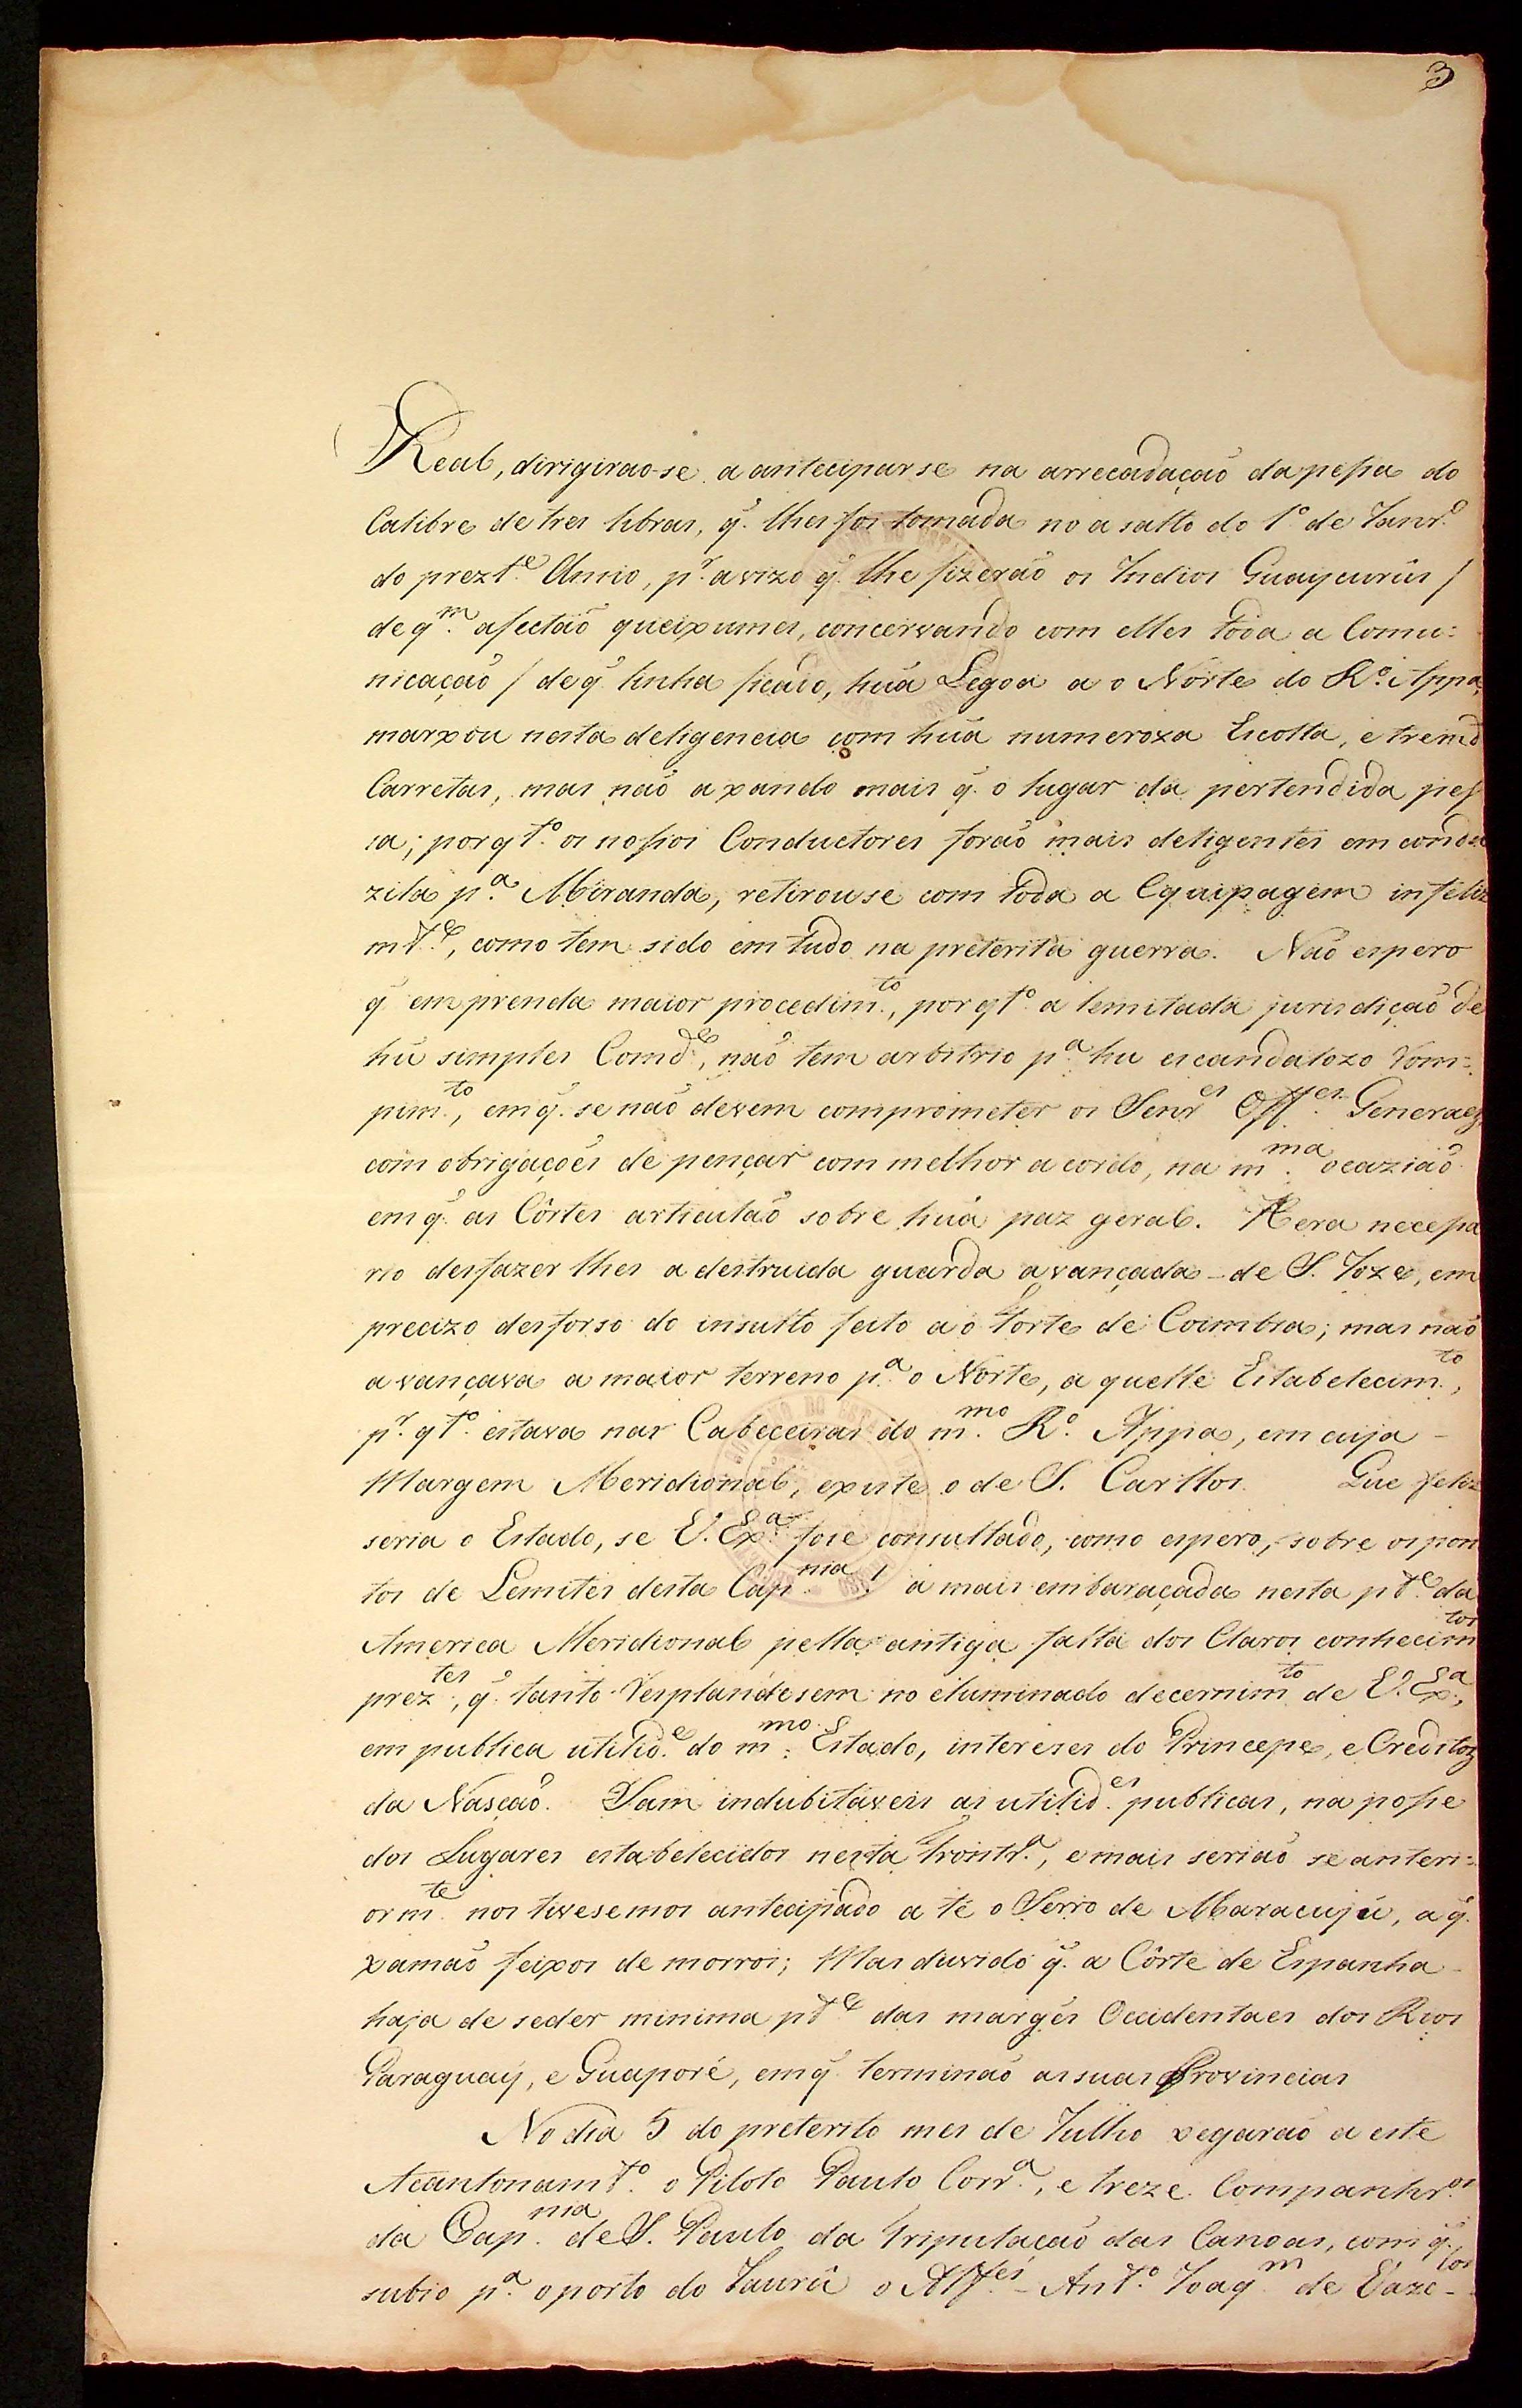 3
Real, dirigirao-se a anteciparse na arrecadação da pessa do
Calibre de tres libras, q̃. lhes foi tomada no a salto do 1º de Janrº
do preztᵉ Anno, pʳ. avizo q̃. lhe fizerão os Indios Guaycurûs /
de qᵐ. afectão queixumes, concervando com elles toda a Comu=
nicação / de q̃ tinha ficado, huã Legoa a o Norte do Rº. Appa,
marxou nesta deligencia com huã numeroza Escolta, e trem d
Carretas, mas não axando mais q̃. o lugar da pertendida pes
sa; por qtº. os nossos Conductores forão mais deligentes em condu
zila pª. Miranda, retirouse com toda a Equipagem infeliz
mtᵉ, como tem sido em tudo na preterita guerra. Não espero
q̃ emprenda maior procedimᵗᵒ., por qtº a lemitada jurisdição de
hũ simples Comdᵉ, não tem arbitrio pª hu escandalozo Rom=
pimᵗᵒ., em q̃. se não devem comprometer os Senrᵉˢ Offᵉˢ. Generaes
com obrigações de pençar com melhor acordo, na mᵐᵃ. ocazião
em q̃. as Côrtes articulão sobre huã paz geral. Hera necessa
rio desfazer lhes a destruida guarda avançada - de S. Joze, em
precizo desforso do insulto feito ao Forte de Coimbra; mas não
avançava a maior terreno pª. o Norte, a quelle Estabelecimᵗᵒ.,
pʳ. qtº. estava nas Cabeceiras do mᵐᵒ. Rº. Appa, em cuja -
Margem Meridional, existe o de S. Carllos. Que feliz
seria o Estado, se V. Exª. fose consultado, como espero, sobre os pon
tos de Lemites desta Capⁿⁱᵃ. a mais embaraçada nesta ptᵉ. da
America Meridional pella antiga falta dos Claros conhecimᵗᵒˢ
prezᵗᵉˢ., q̃. tanto resplandesem no eluminado decernimᵗᵒ de V. Exª.,
em publica utilidᵉ. do mᵐᵒ. Estado, intereses do Princepe, e Creditos
da Nasção. Sam indubitaveis as utilidᵉˢ. publicas, na posse
dos Lugares estabelecidos nesta Frontrª., e mais serião se anteri=
ormᵗᵉ nos tivesemos antecipado a té o Serro de Maracujú, a q̃.
xamão feixos de morros; Mas duvido q̃. a Côrte de Espanha -
haja de seder minima ptᵉ das margẽs Occidentaes dos Rios
Paraguay, e Guaporé, em q̃ terminão as suas Provincias
No dia 5 do preterito mes de Julho xegarão a este
Acantonamtº. o Piloto Paulo Corrª., e treze Companhrᵒˢ
da Capⁿⁱᵃ. de S. Paulo da Tripulação das Canoas, com q̃.
subio pª. o porto do Jaurû o Alfᵉˢ - Antº. Joaqᵐ de Vazcˡᵒˢ -